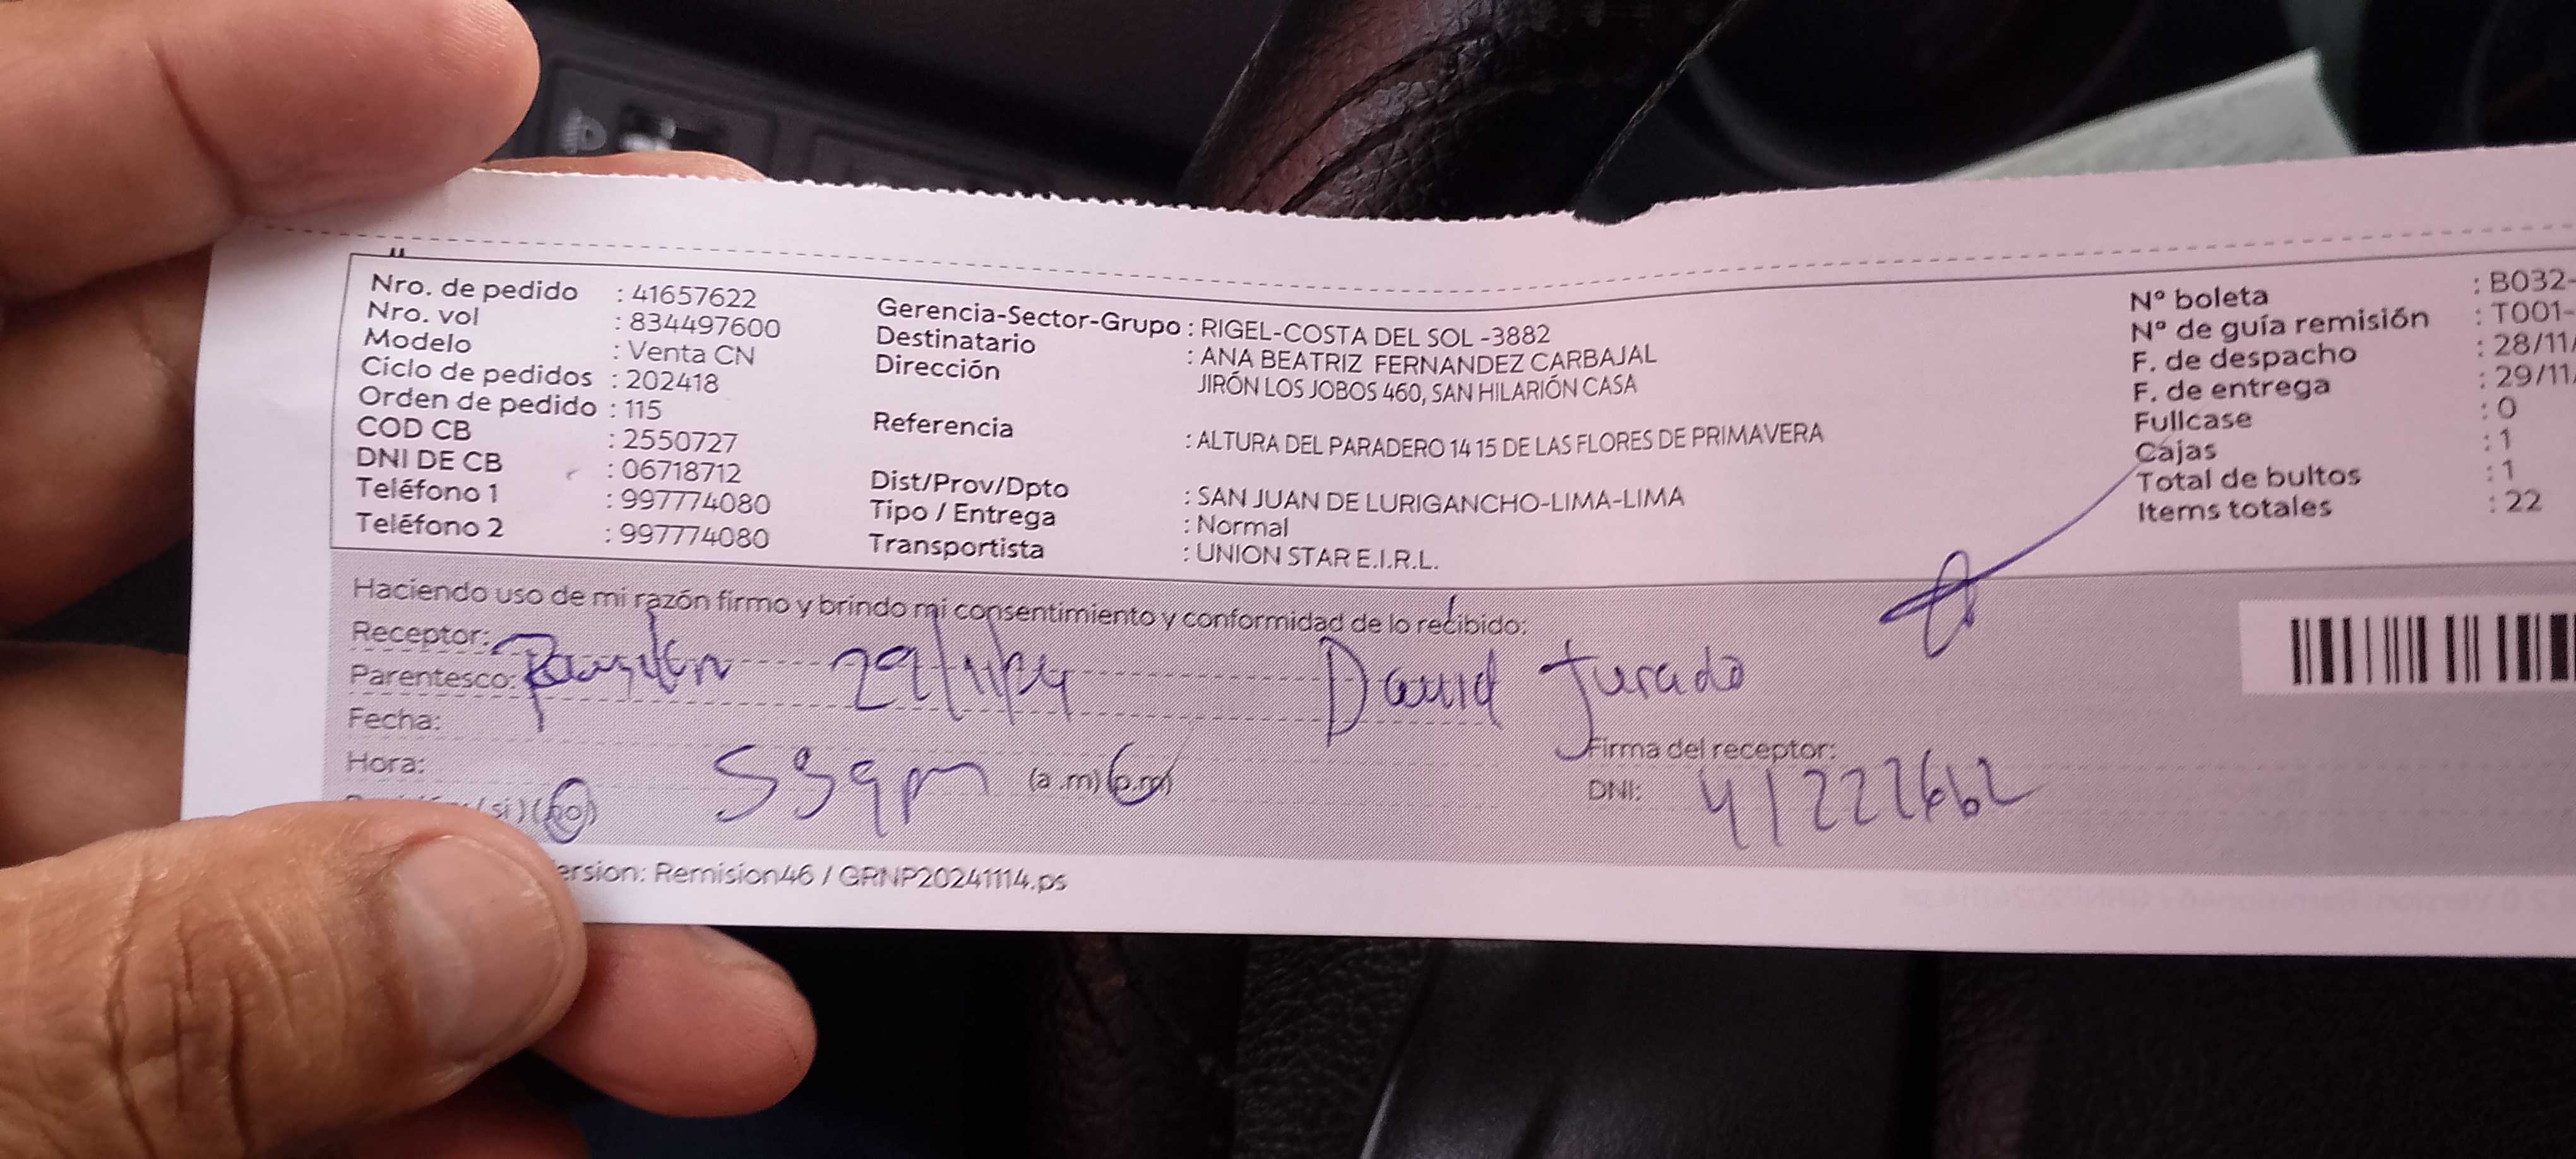 Nro. de pedido : 41657622
Nro. vol : 834497600
Modelo : Venta CN
Ciclo de pedidos : 202418
Orden de pedido : 115
COD CB : 2550727
DNI DE CB : 06718712
Teléfono 1 : 997774080
Teléfono 2 : 997774080
Gerencia-Sector-Grupo : RIGEL-COSTA DEL SOL -3882
Destinatario : ANA BEATRIZ FERNANDEZ CARBAJAL
Dirección JIRÓN LOS JOBOS 460, SAN HILARIÓN CASA
Referencia : ALTURA DEL PARADERO 14 15 DE LAS FLORES DE PRIMAVERA
Dist/Prov/Dpto : SAN JUAN DE LURIGANCHO-LIMA-LIMA
Tipo / Entrega : Normal
Transportista : UNION STAR E.I.R.L.
N° boleta : B032-
N° de guía remisión : T001-
F. de despacho : 28/11/
F. de entrega : 29/11/
Fullcase : 0
Cajas : 1
Total de bultos : 1
Items totales : 22
Haciendo uso de mi razón firmo y brindo mi consentimiento y conformidad de lo recibido:
Receptor:
Parentesco: 29/11/24 David Jurado
Fecha:
Firma del receptor:
Hora: (a.m) (p.m)
DNI: 41222662
(si) (no)
ersion: Remision46 / GRNP20241114.ps